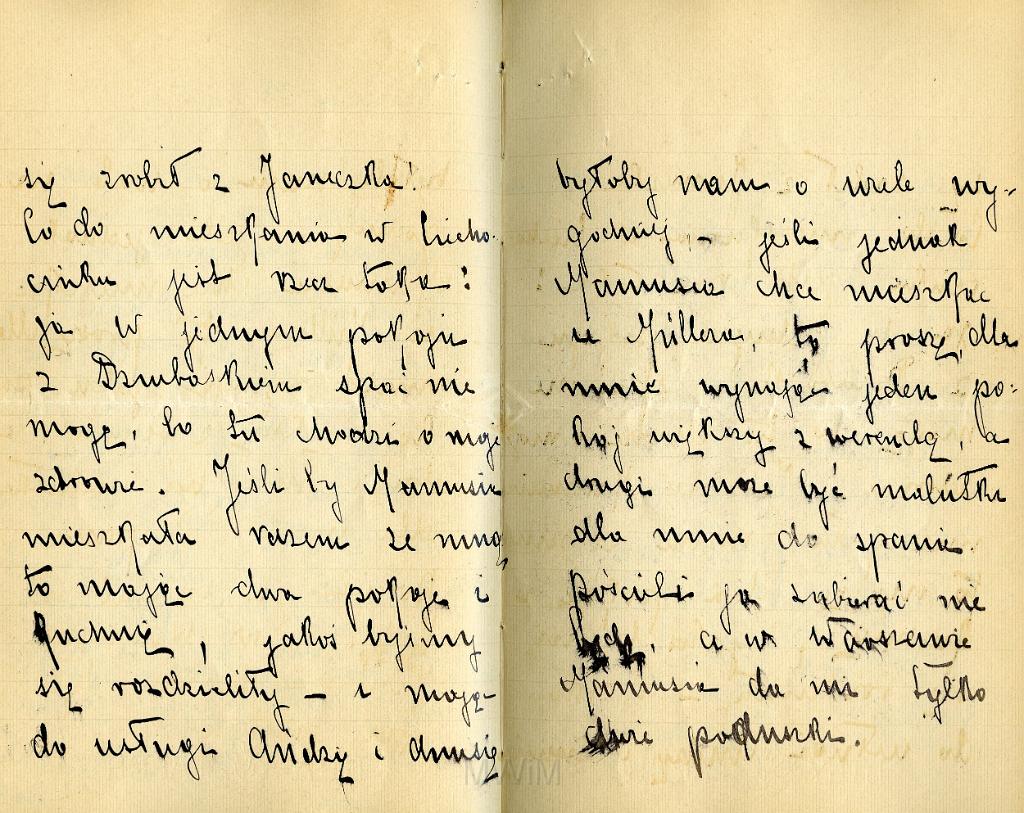 się zrobił z Janeczka!
Co do mieszkania w Ciecho-
cinku jest rzecz taka:
ja w jednym pokoju
z Dziubaskiem spać nie
mogę, bo tu chodzi o moje
zdrowie. Jeśli by Mamusia
mieszkała razem ze mną
to mając dwa pokoje i
kuchnię, jakoś byśmy
się rozdzieliły – i mając
do usługi Andzę i drugą
byłoby nam o wiele wy-
godniej, – jeśli jednak
Mamusia chce mieszkać
u Müllera, to proszę, dla
mnie wynająć jeden po-
kój większy z werendą, a
drugi może być malutki
dla mnie do spania.
Pościeli ja zabierać nie
będę, a w Warszawie
Mamusia da mi tylko
dwie poduszki.
MWiM